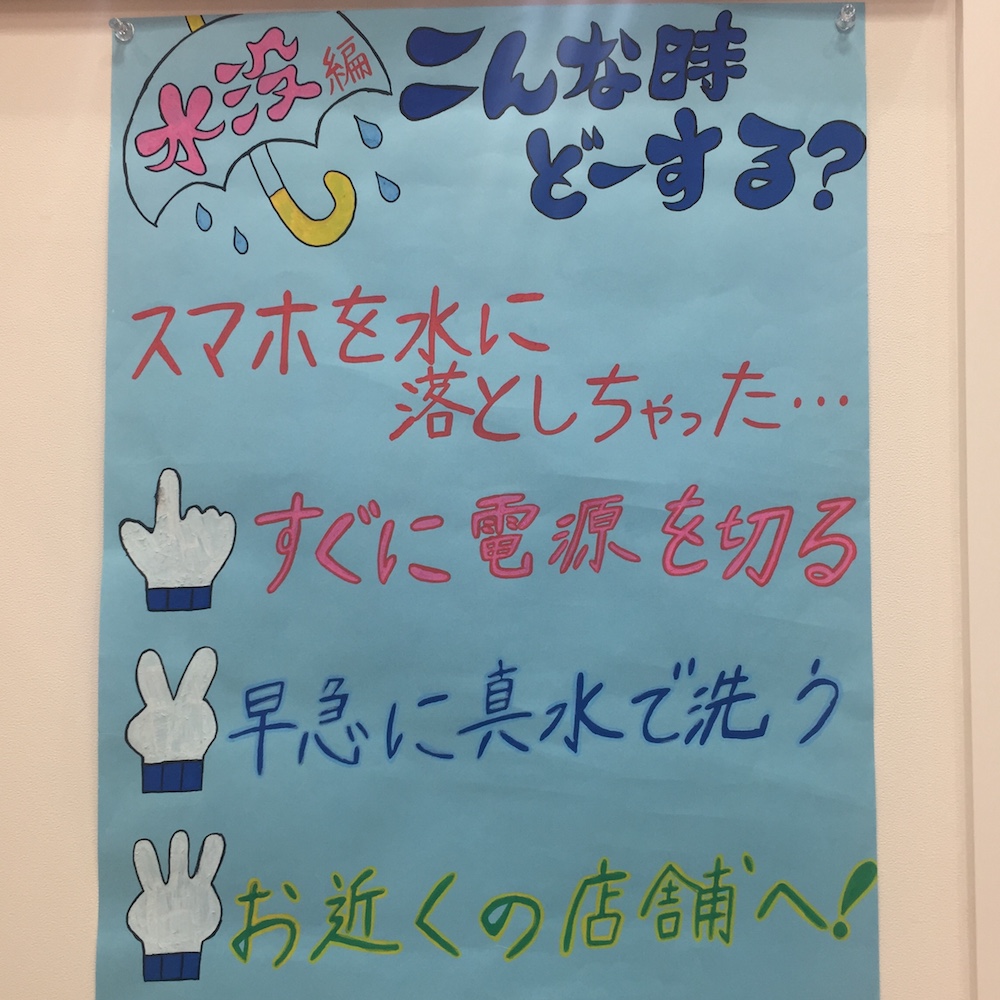 水没編
こんな時
どーする?
スマホを水に
落としちゃった…
すぐに電源を切る
早急に真水で洗う
お近くの店舗へ!